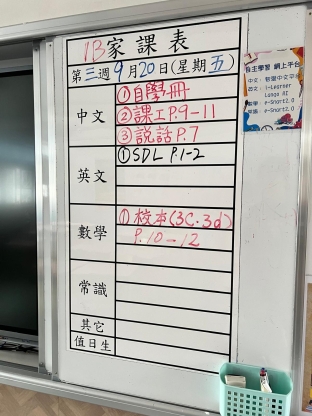 1B家課表
第三週9月20日(星期五)
中文
①自學冊
②課工P.9-11
③說話P.7
英文
①SDL P.1-2
數學
①校本(3C.3d)
P.10-12
常識
其它
值日生
自主學習 網上平台
中文:智愛中文平台
英文:i-Learner
Longo AI
數學:e-Smart2.0
常識:e-Smart2.0